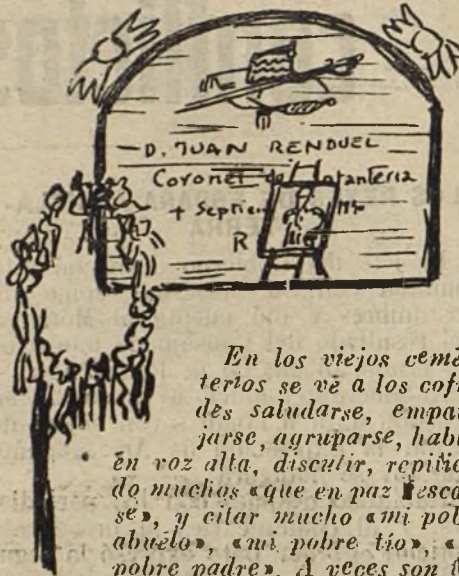 D. JUAN RENDUEL
Coronel de
+ Septie
R
En los viejos cemē
terios se vē a los cofr
des saludarse, empar
jarse, agruparse, habl
ēn voz alta, discutir, repitiē
do muchos «que en paz desca
se», y citar mucho «mi pob
abuelo», «mi pobre tío», «
pobre padre». A veces son